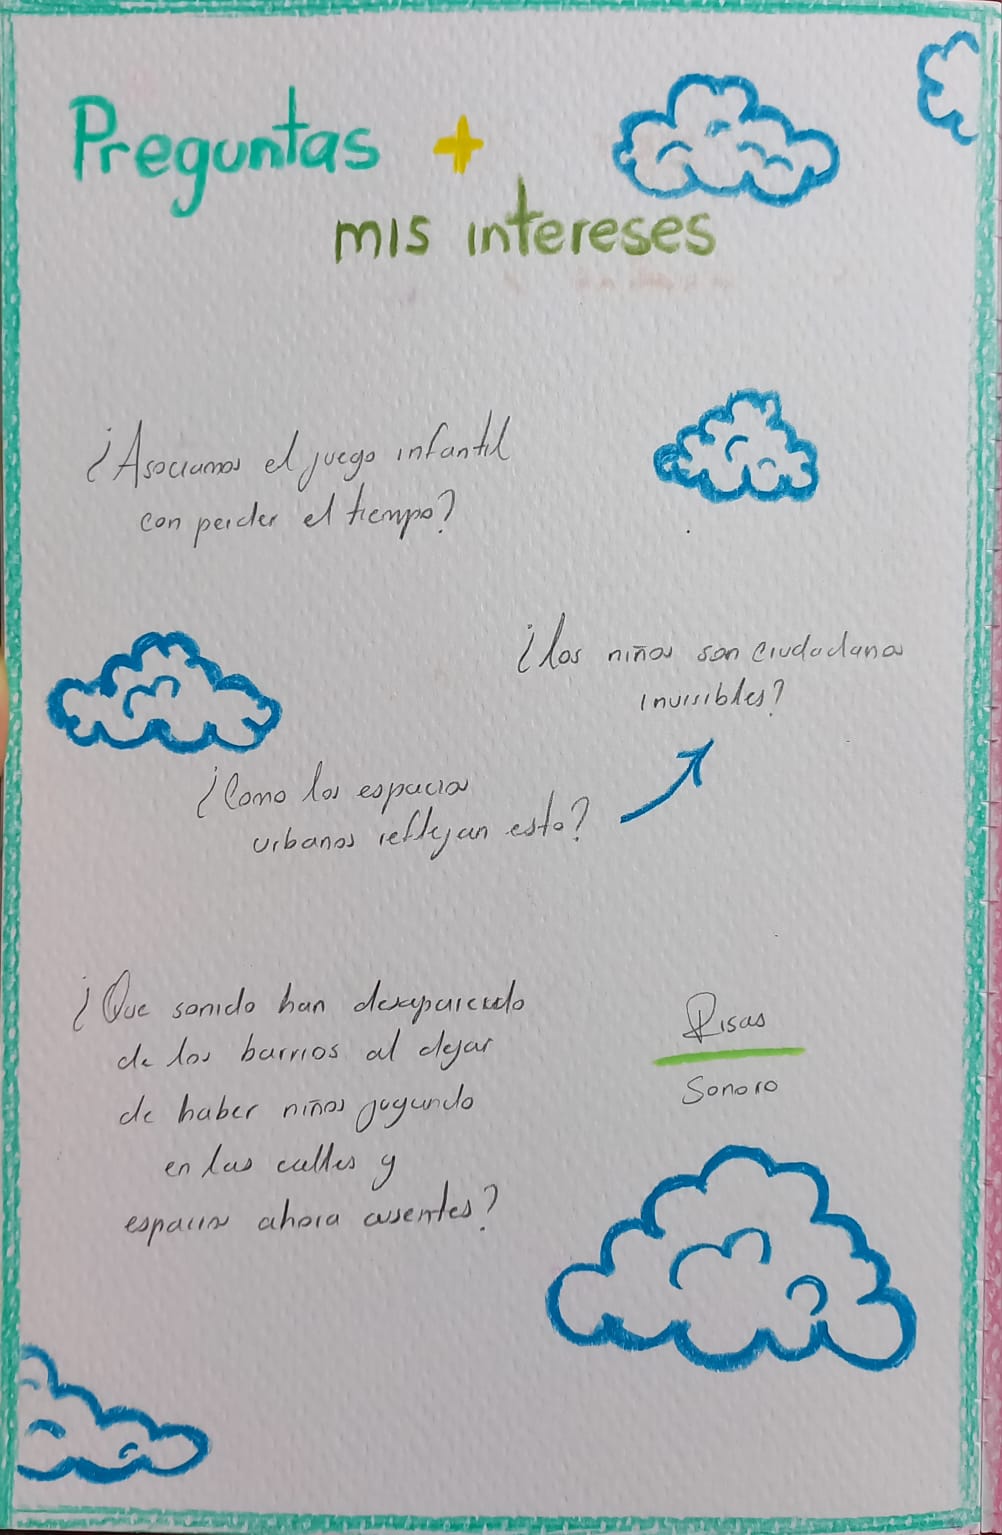 Preguntas +
mis intereses
¿Asociamos el juego infantil
con perder el tiempo?
¿los niños son ciudadanos
invisibles?
¿Como los espacios
urbanos reflejan esto?
¿Que sonido han desaparecido
de los barrios al dejar
de haber niños jugando
en las calles y
espacios ahora ausentes?
Risas
Sonoro